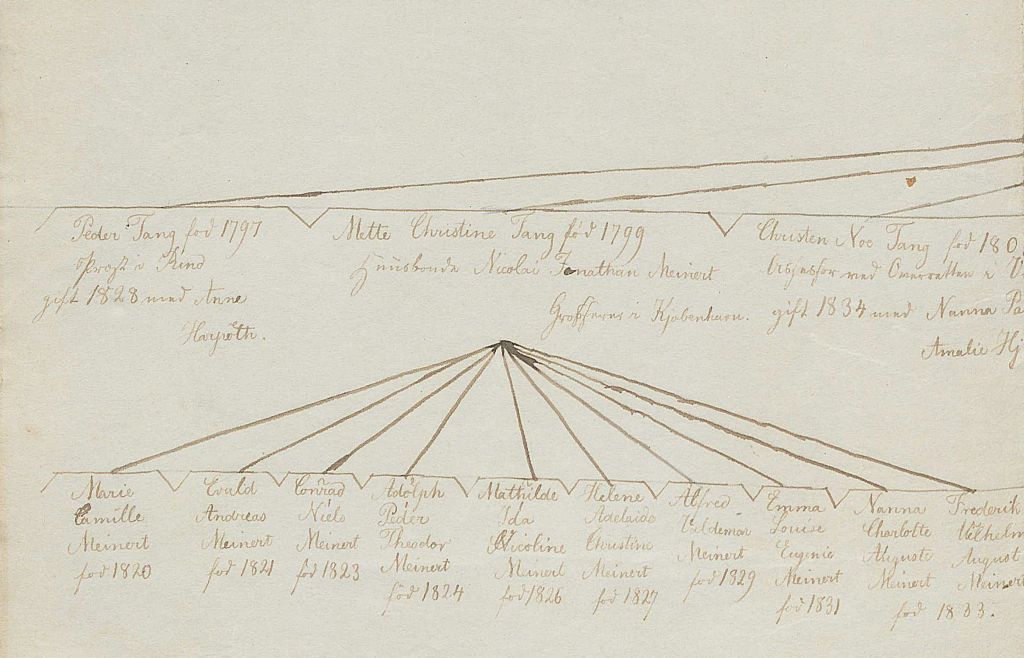 Peder Tang fød 1797
Provst i Rind
gift 1828 med Anne
Harpøth.
Mette Christine Tang fød 1799
Huusbonde Nicolai Jonathan Meinert
Grosserer i Kjøbenhavn.
Christen Noe Tang fød 180
Assessor ved Overretten i V
gift 1834 med Nanna Pa
Amalie Hj
Marie
Camille
Meinert
fød 1820
Evald
Andreas
Meinert
fød 1821
Conrad
Niels
Meinert
fød 1823
Adolph
Peder
Theodor
Meinert
fød 1824
Mathilde
Ida
Nicoline
Meinert
fød 1826
Helene
Adelaide
Christine
Meinert
fød 1827
Alfred
Valdemar
Meinert
fød 1829
Emma
Louise
Eugenie
Meinert
fød 1831
Nanna
Charlotte
Auguste
Meinert
Frederik
Vilhelm
August
Meinert
fød 1833.